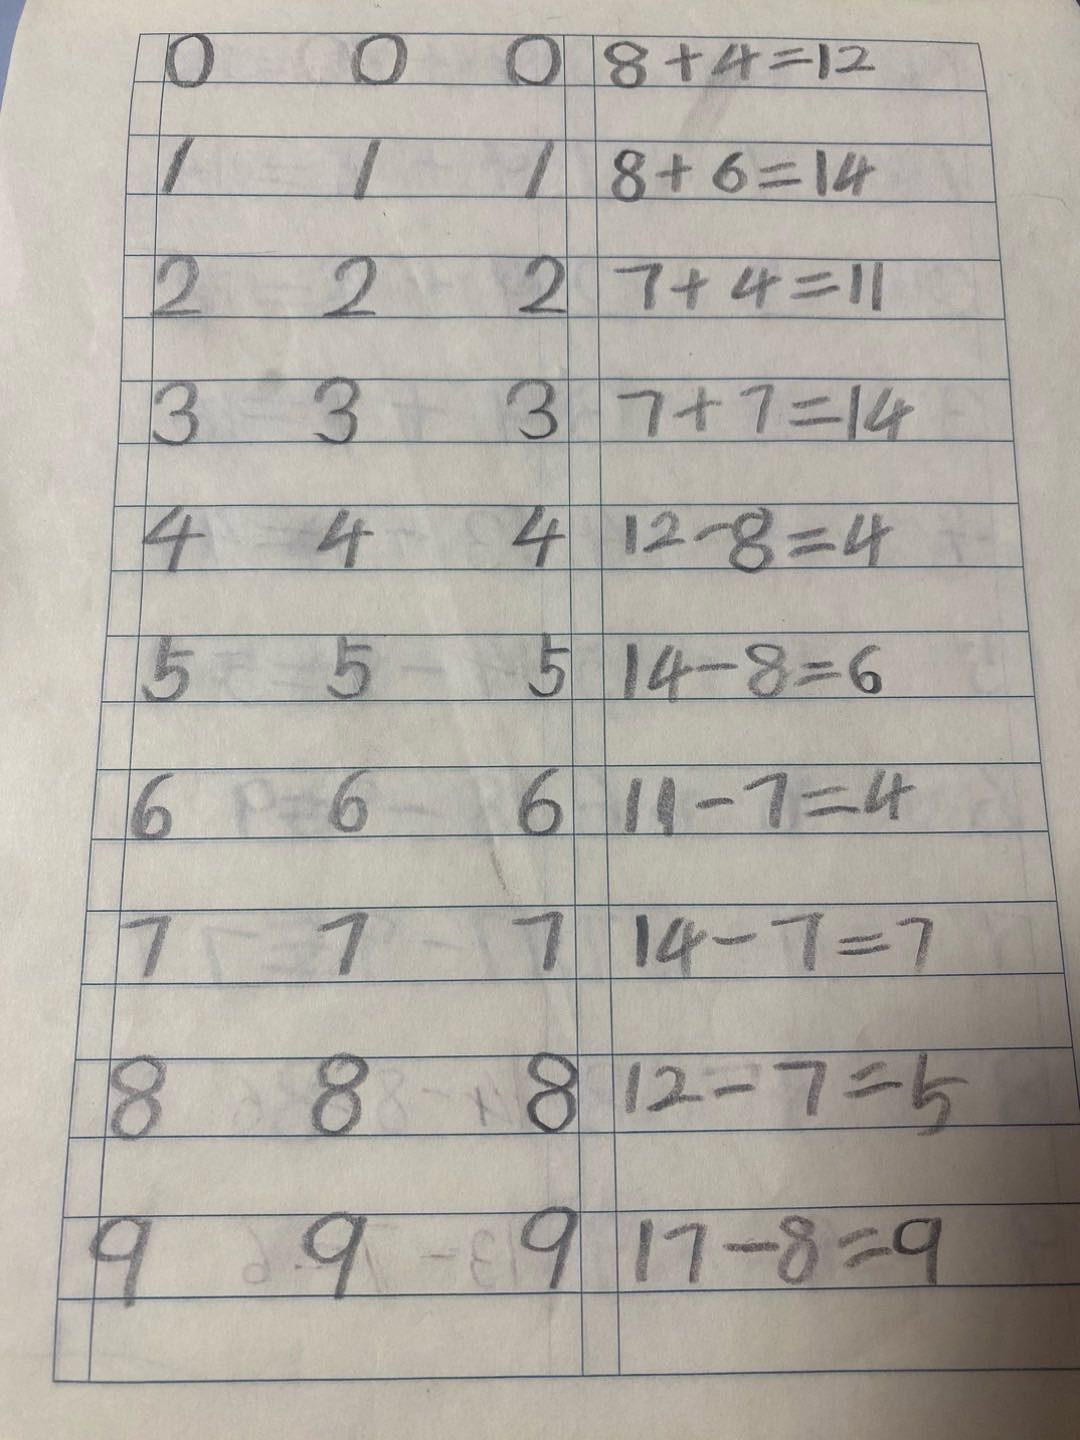 0 0 0 8+4=12
1 1 1 8+6=14
2 2 2 7+4=11
3 3 3 7+7=14
4 4 4 12-8=4
5 5 5 14-8=6
6 6 6 11-7=4
7 7 7 14-7=7
8 8 8 12-7=5
9 9 9 17-8=9